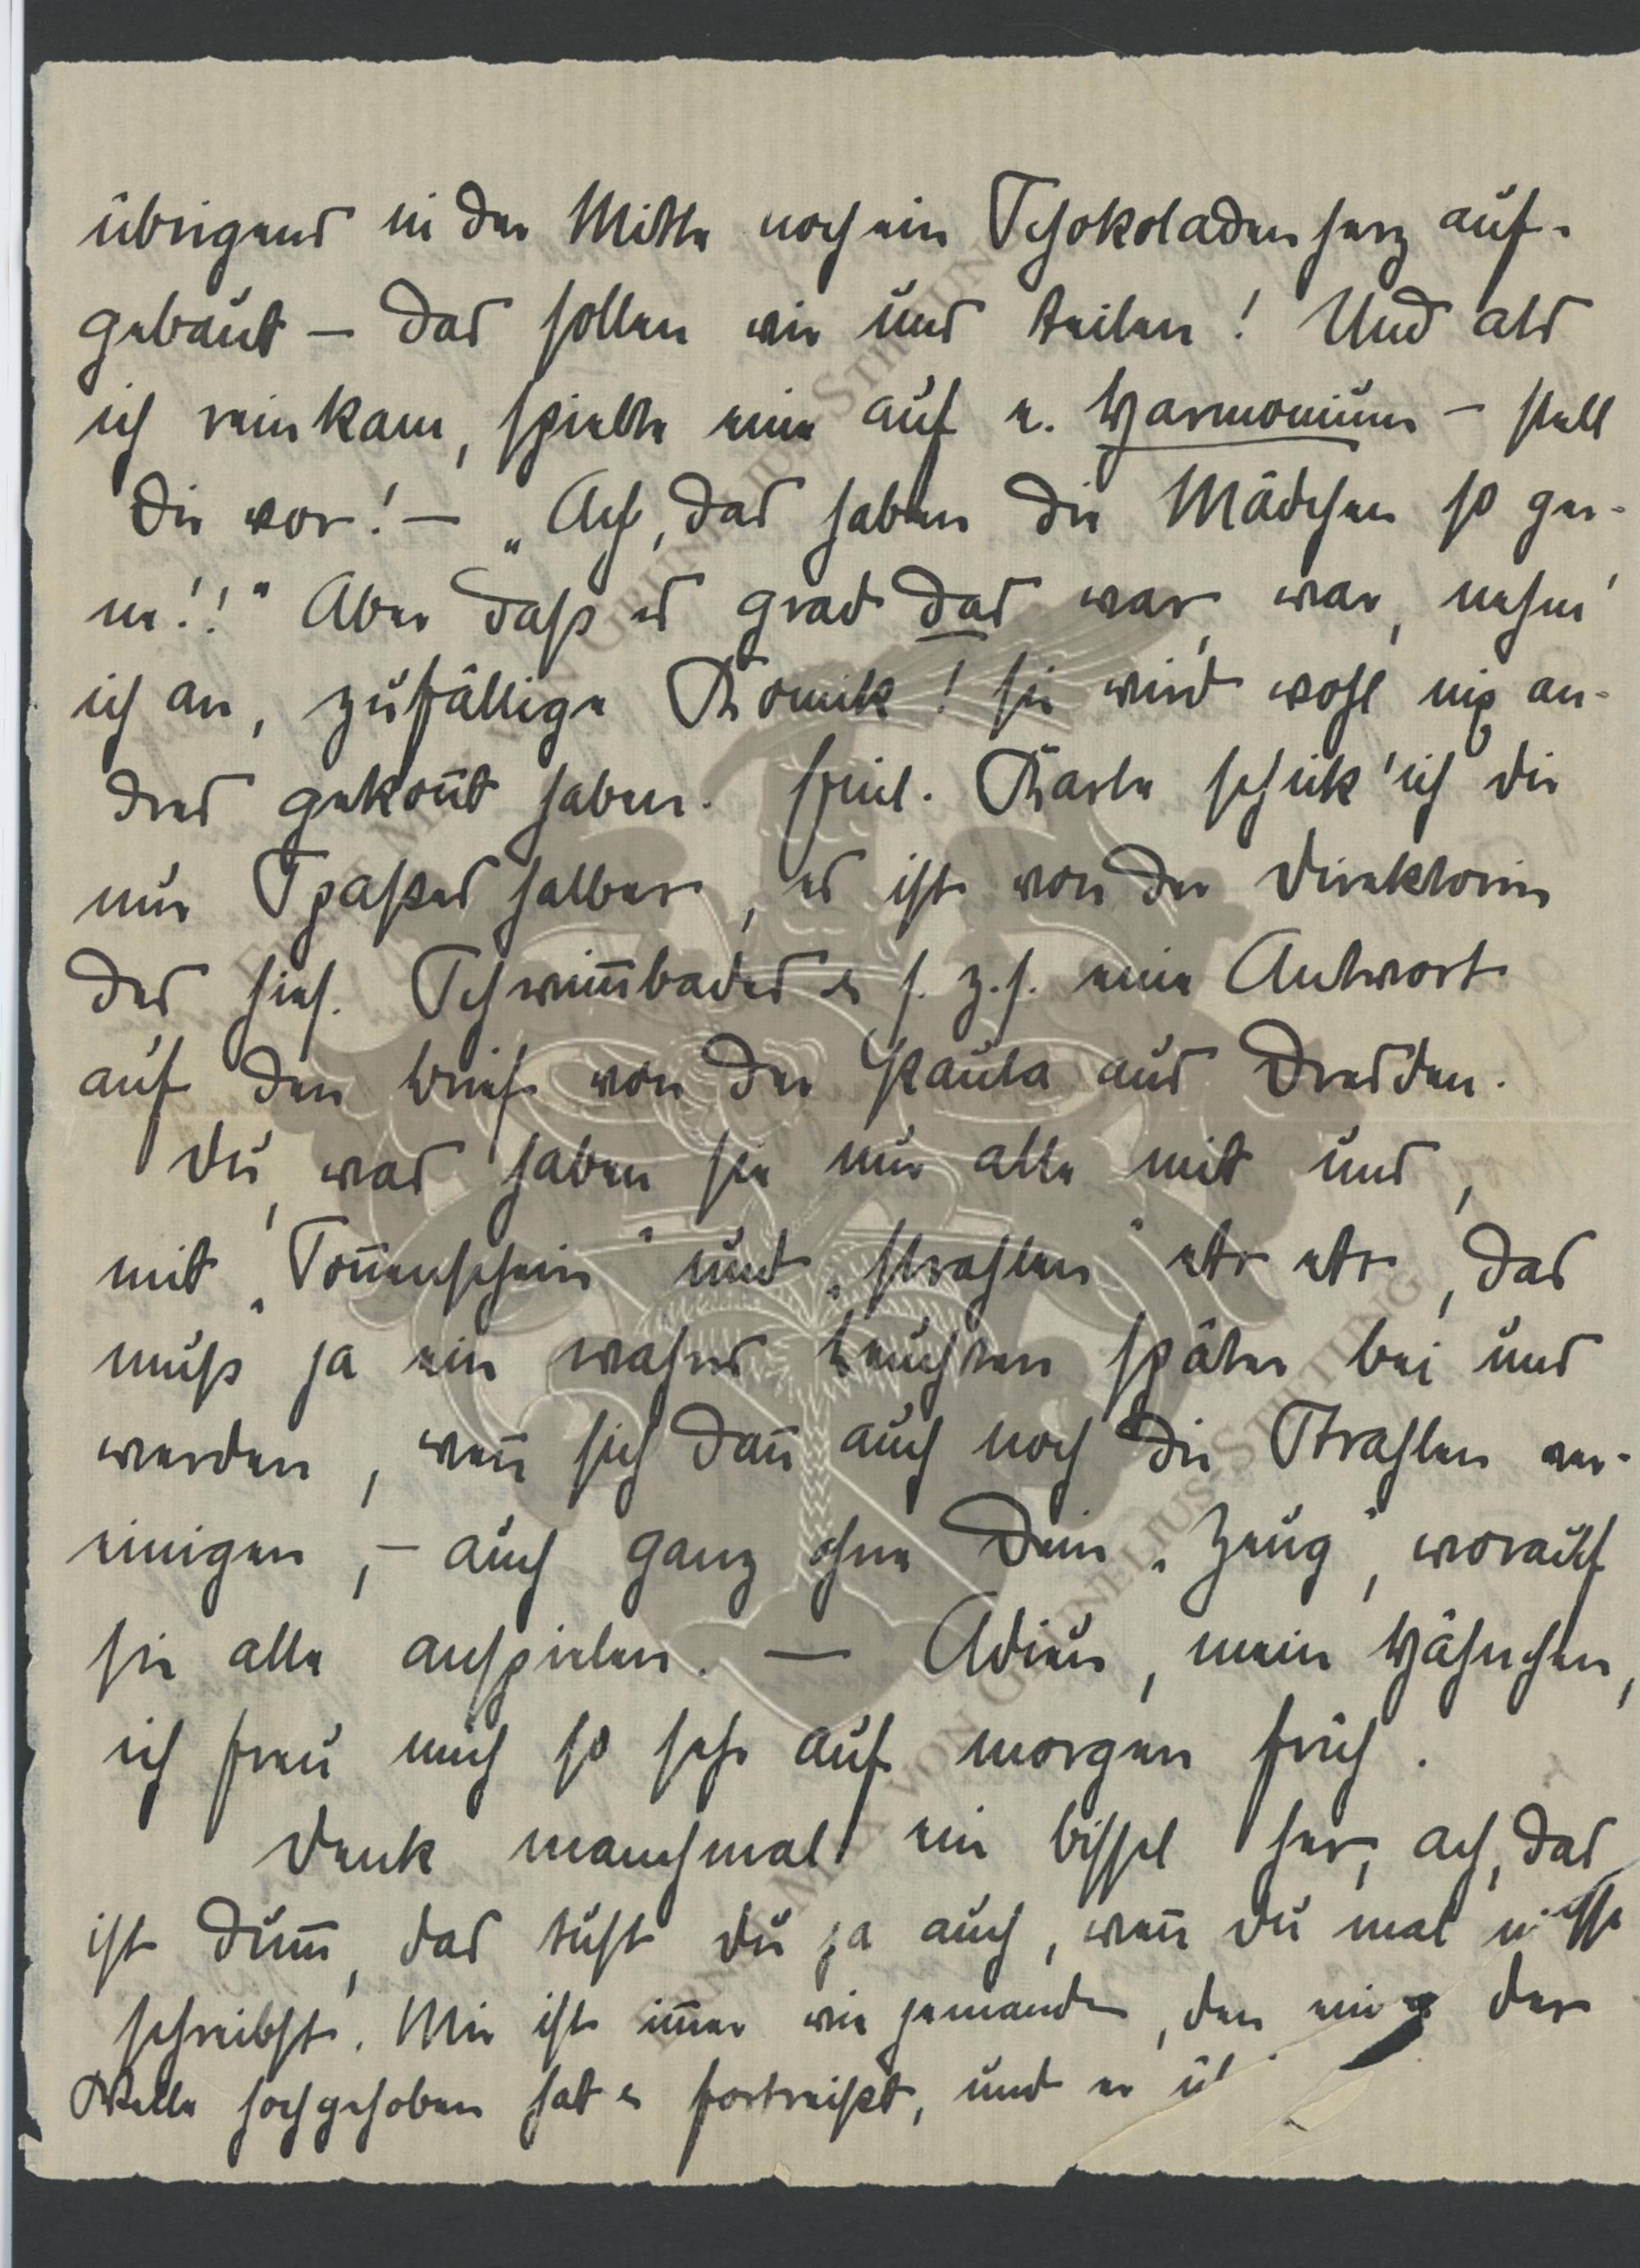 übrigens in der Mitte noch ein Schokoladenherz auf-
gebaut – das sollen wir uns teilen! Und als
ich reinkam, spielte eine auf e. Harmonium – stell
Dir vor! – „Ach, das haben die Mädchen so ger-
ne!!" Aber daß es grad das war, war, nehm'
ich an, zufällige Komik! sie wird wohl nix an-
dres gekon̄t haben. Karte schick' ich Dir
nur Spaßes halber, es ist von der Direktorin
des hies. Schwim̄bades & s. z. s. eine Antwort
auf den Brief von der Paula aus Dresden.
Du, was haben sie nur alle mit uns,
mit „Son̄enschein" und „strahlen" etc etc, das
muß ja ein wahres Leuchten später bei uns
werden, wen̄ sich dan̄ auch noch die Strahlen ver-
einigen, – auch ganz ohne Dein „Zeug", worauf
sie alle anspielen. – Adieu, mein Hähnchen,
ich freu mich so sehr auf morgen früh.
Denk manchmal ein bissel her, ach, das
ist dum̄, das tust Du ja auch, wen̄ Du mal nicht
schreibst. Mir ist im̄er wie jemandem, den eine der
Welle hochgehoben hat & fortreißt, und er